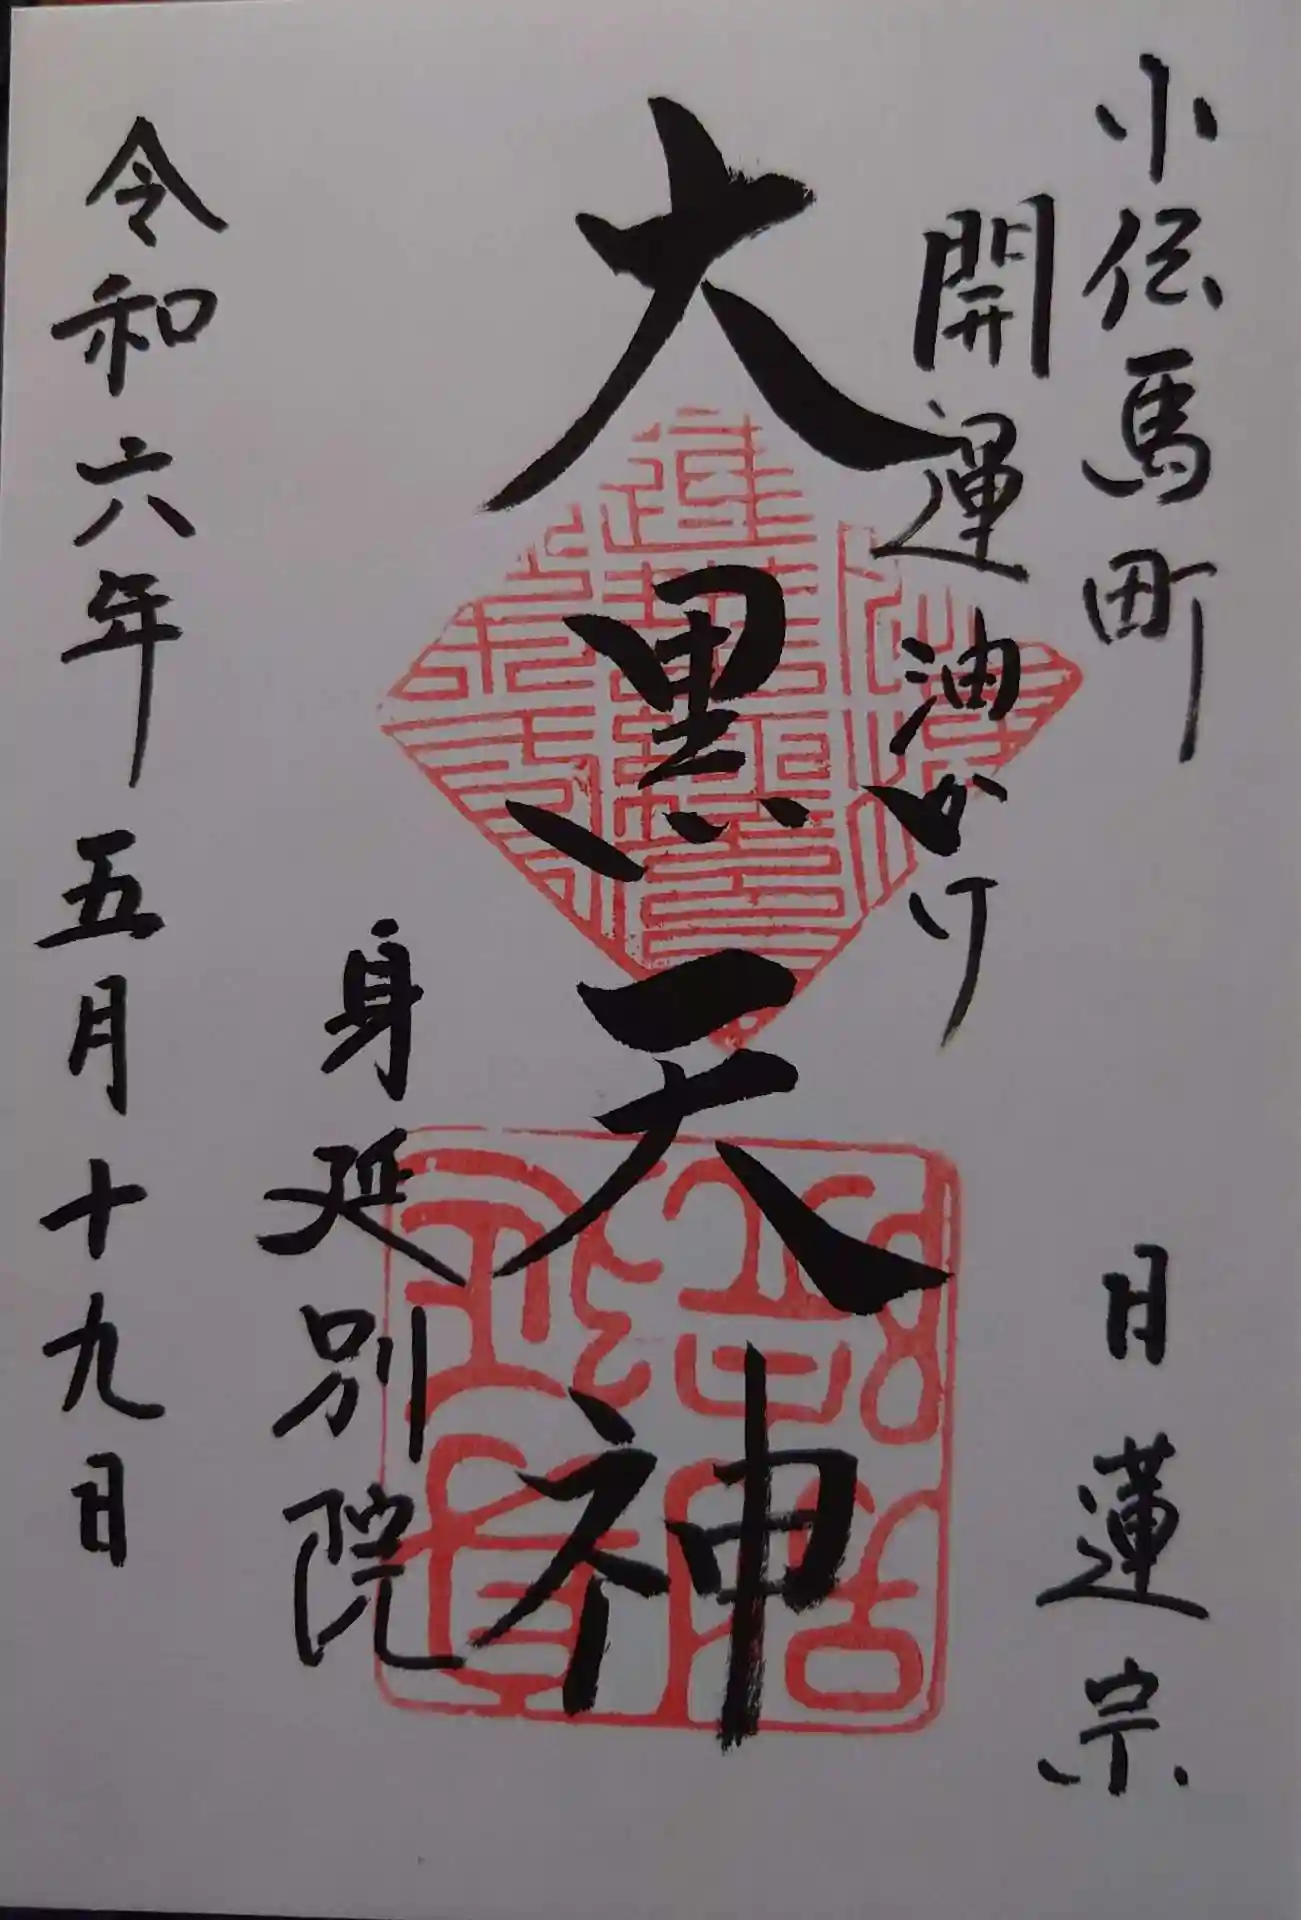 小伝馬町 日蓮宗
開運 油かけ
大黒天神
身延別院
令和六年 五月十九日